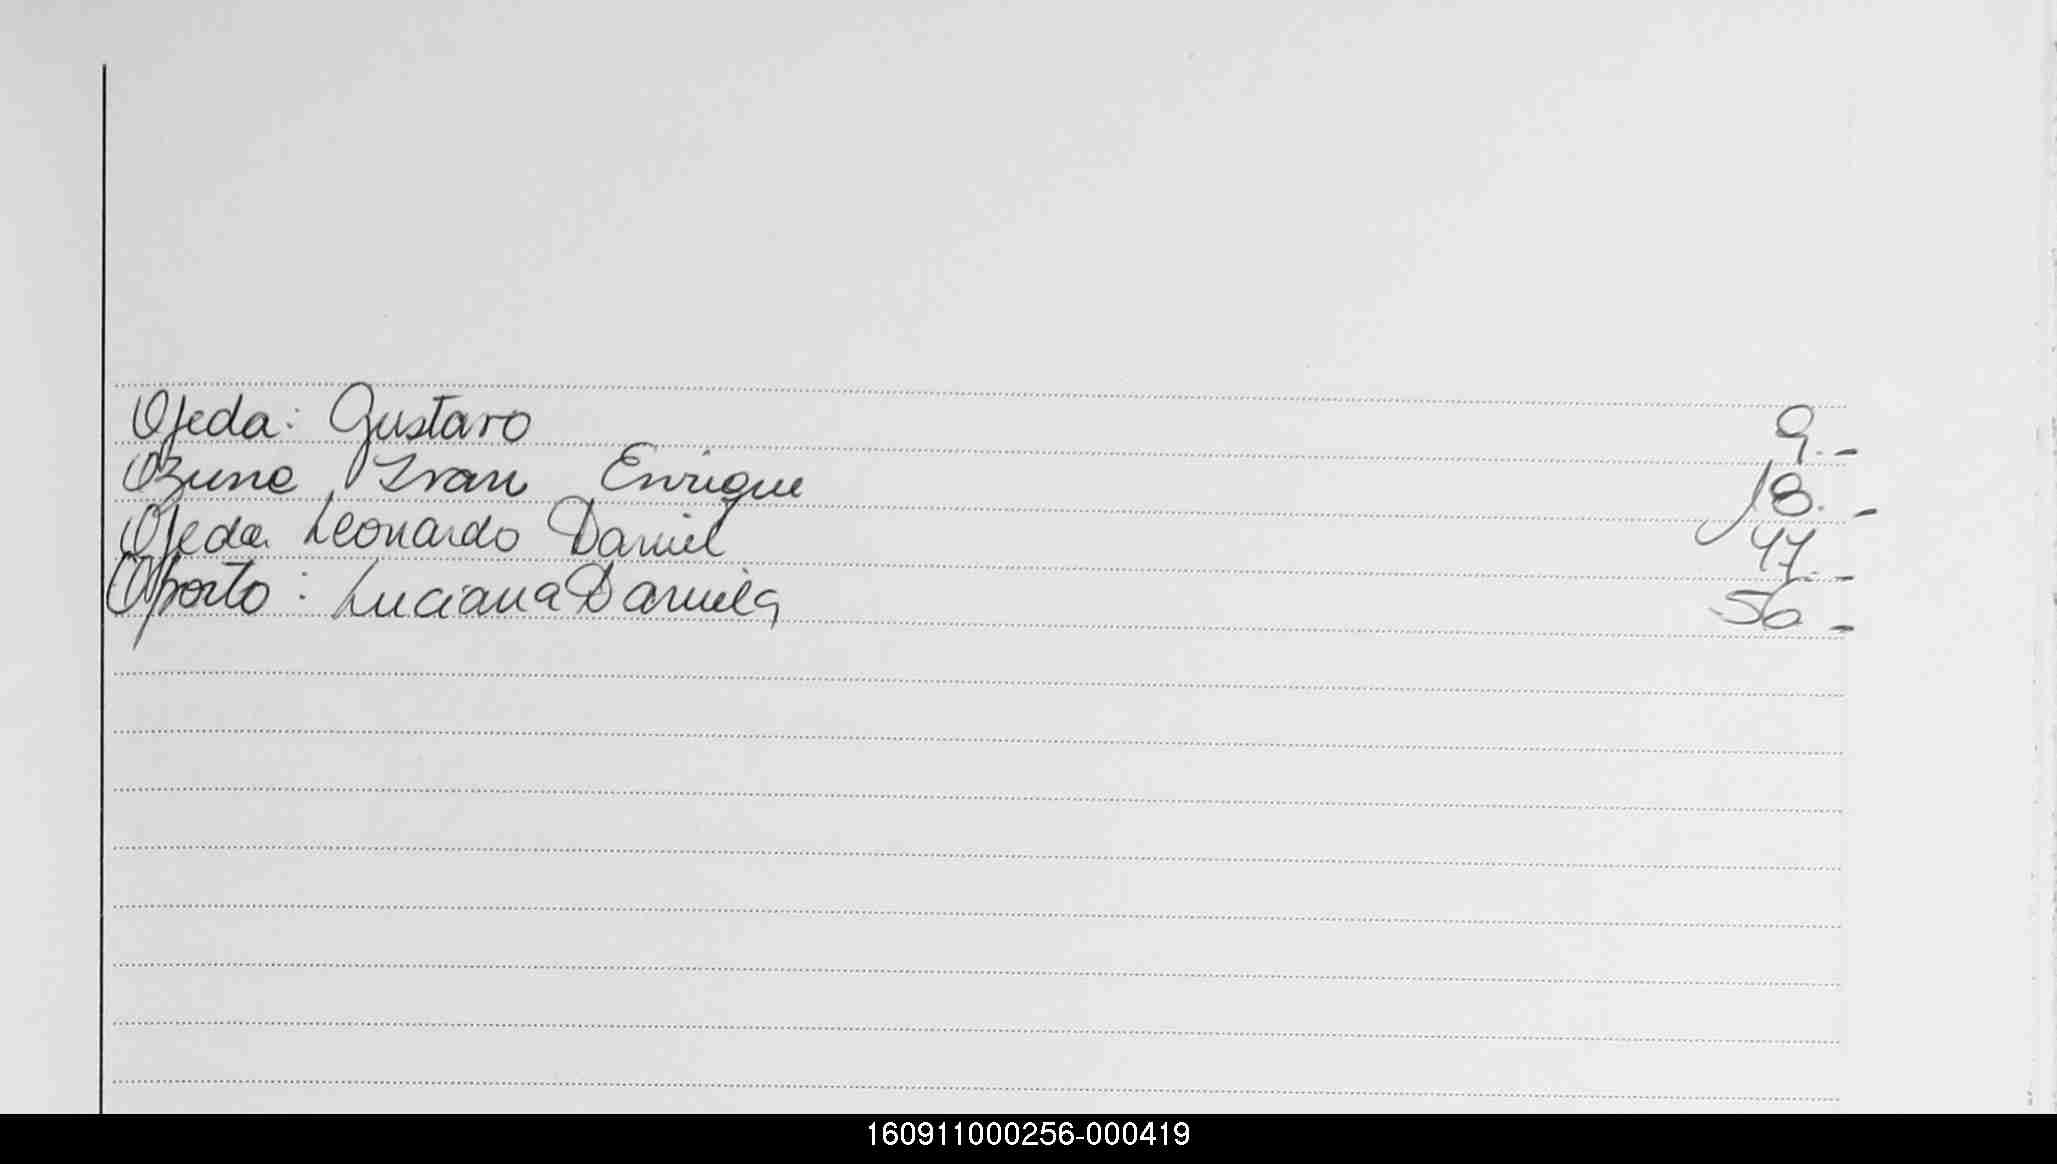 Ojeda: Gustavo 9.-
Ozuna Ivan Enrique 18.-
Ojeda Leonardo Daniel 47.-
Oporto: Luciana Daniela 56 -
160911000256-000419